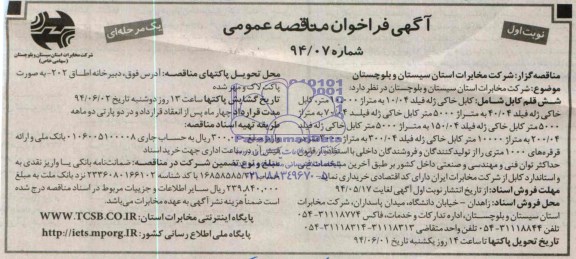 آگهی فراخوان مناقصه عمومی
شماره ۹۴/۰۷
نوبت اول
یک مرحله‌ای
شرکت مخابرات استان سیستان و بلوچستان
(سهامی خاص)
مناقصه گزار: شرکت مخابرات استان سیستان و بلوچستان
موضوع: شرکت مخابرات استان سیستان و بلوچستان در نظر دارد:
شش قلم کابل شامل: کابل خاکی ژله فیلد ۱۰/۰۴ به متراژ متر، کابل
خاکی ژله فیلد ۴۰/۰۴ به متراژ ۵۰۰۰ متر کابل خاکی ژله فیلد ۷۰/۰۴ به متراژ
۵۰۰۰ متر کابل خاکی ژله فیلد ۱۵۰/۰۴ به متراژ ۵۰۰۰ متر کابل خاکی ژله فیلد
۲۰۰/۰۴ به متراژ ۱۰۰۰۰ متر کابل خاکی ژله فیلد ۳۰۰/۰۴ به متراژ
قرقره‌های ۱۰۰۰ متری را از تولیدکنندگان و فروشندگان داخلی با استفاده از قانون
حداکثر توان فنی و مهندسی و صنعتی داخل کشور بر طبق آخرین مشخصات فنی
و استاندارد کابل از شرکت مخابرات ایران دارای کد اقتصادی خریداری نماید.
مهلت فروش اسناد: از تاریخ انتشار نوبت اول آگهی لغایت ۹۴/۰۵/۱۷
محل فروش اسناد: زاهدان - خیابان دانشگاه، میدان پاسداران، شرکت مخابرات
استان سیستان و بلوچستان، اداره تدارکات و خدمات، فاکس ۳۱۱۱۸۷۷۴-۰۵۴
تلفن ۳۱۱۱۸۸۴۴-۰۵۴ تلفن واحد متقاضی ۳۱۱۱۸۳۱۳-۳۱۱۱۸۳۱۴-۰۵۴
تاریخ تحویل پاکتها تا ساعت ۱۴ روز یکشنبه تاریخ ۹۴/۰۶/۰۱
محل تحویل پاکتهای مناقصه: آدرس فوق، دبیرخانه اطاق ۲۰۲- به صورت
پاکت لاک و مهر شده
تاریخ گشایش پاکتها ساعت ۱۳ روز دوشنبه تاریخ ۹۴/۰۶/۰۲
مدت قرارداد: چهار ماه پس از انعقاد قرارداد و در دو پارتی دو ماهه
طریقه تهیه اسناد مناقصه:
واریز مبلغ ریال به حساب جاری ۰۱۰۶۰۰۵۱۱۰۰۰۸ بانک ملی و ارائه
فیش آن در ساعات اداری جهت خرید اسناد
مبلغ و نوع تضمین شرکت در مناقصه: ضمانتنامه بانکی یا واریز نقدی به
حساب با کد شناسه نزد بانک ملت به مبلغ
۲۳۹,۸۴۰,۰۰۰ ریال سایر اطلاعات و جزییات مربوط در اسناد مناقصه درج شده
است ضمناً هزینه نشر آگهی به عهده برنده مناقصه می‌باشد.
پایگاه اینترنتی مخابرات استان: WWW.TCSB.CO.IR
پایگاه ملی اطلاع رسانی کشور: http://iets.mporg.IR